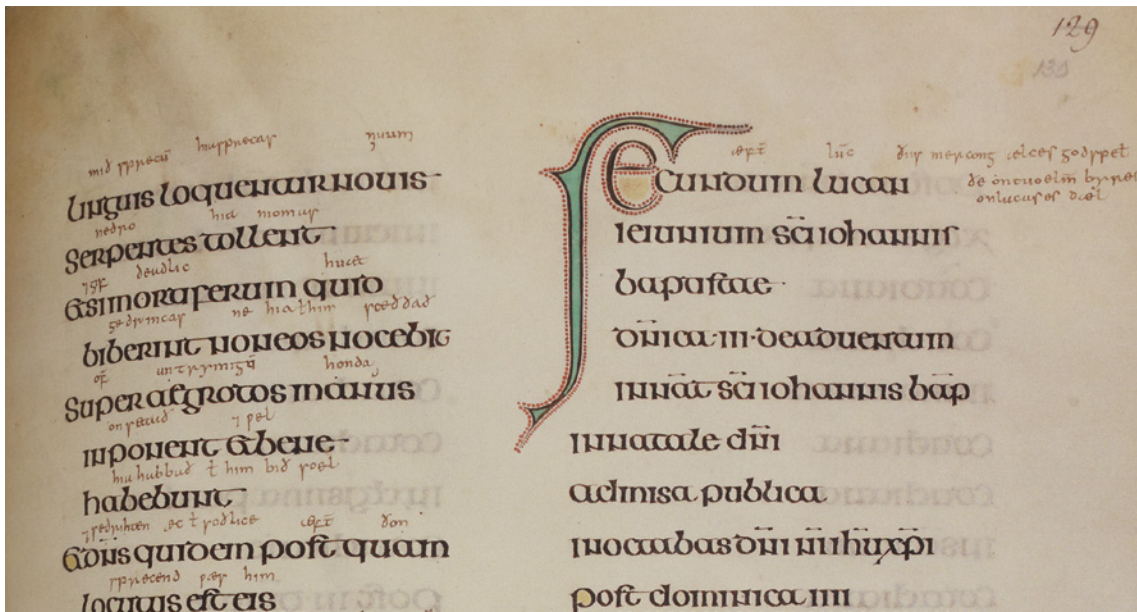 129
mið sprecū hia sprecas niuum
linguis loquentur nouis
nedro hia nomas
serpentes tollent
7 gif deadlic huæt
et si mortiferum quid
gedrincas ne hia ł him sceððað
biberint non eos nocebit
of̄ untrymigū honda
super aegrotos manus
on settað 7 wel
inponent et bene
hia habbað ł him bið woel
habebunt
æft̄ ðon
et dn̄s quidem post quam
sprecend wæs him
locutus est eis
æft̄ lūc ðus mercong ælces godspel
secundum lucan
ieiunium sc̄i iohannis
baptistae
dn̄ica · iii · de aduentum
in nat̄ sc̄i iohannis bap̄
in natale dn̄i
ad misa publica
in octabas dn̄i n̄i ih̄u xp̄i
post dominica iiii